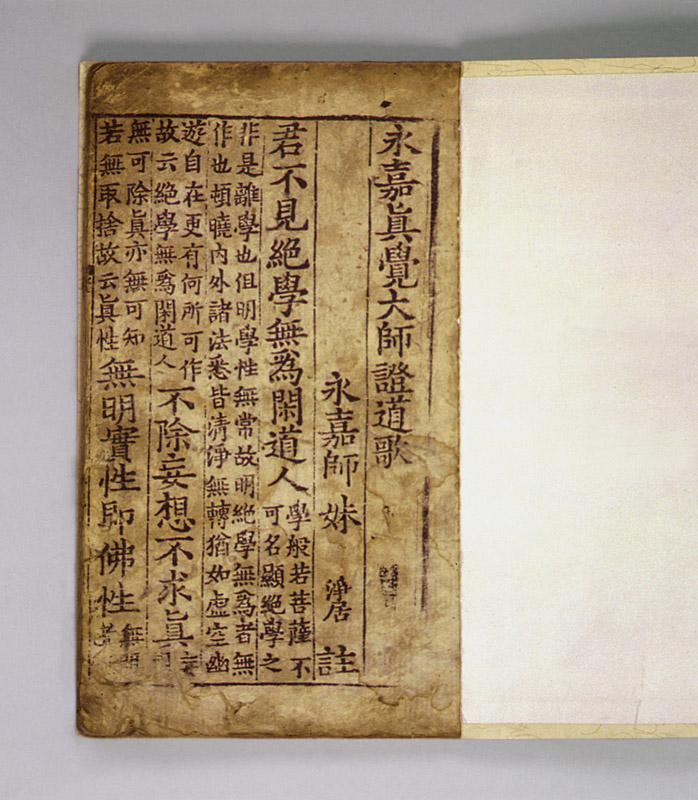 永嘉眞覺大師證道歌
永嘉師妹 淨居 註
君不見絶學無爲閑道人
學般若菩薩不
可名顯絶學之
非是離學也但明學性無常故明絶學無爲者無
作也頓曉内外諸法悉皆清淨無轉猶如虚空幽
遊自在更有何所可作
故云絶學無爲閑道人
不除妄想不求眞
無可除眞亦無可知
若無取捨故云眞性
無明實性即佛性
無明